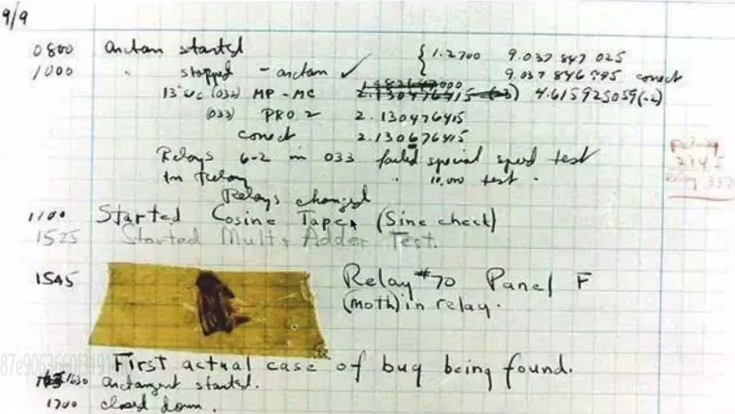 9/9
0800 arctan started { 1.2700 9.037 847 025
1000 " stopped - arctan ✓ 9.037 846 795 conect
13"uc (032) MP - MC 2.130476415 4.615925059(-2)
(033) PRO 2 2.130476415
conect 2.130676415
Relays 6-2 in 033 failed special speed test
In Relay " 10,000 test .
Relays changed
1100 Started Cosine Tape (Sine check)
1525 Started Mult + Adder Test.
1545 Relay #70 Panel F
(moth) in relay.
First actual case of bug being found.
1630 arctangent started.
1700 closed down.